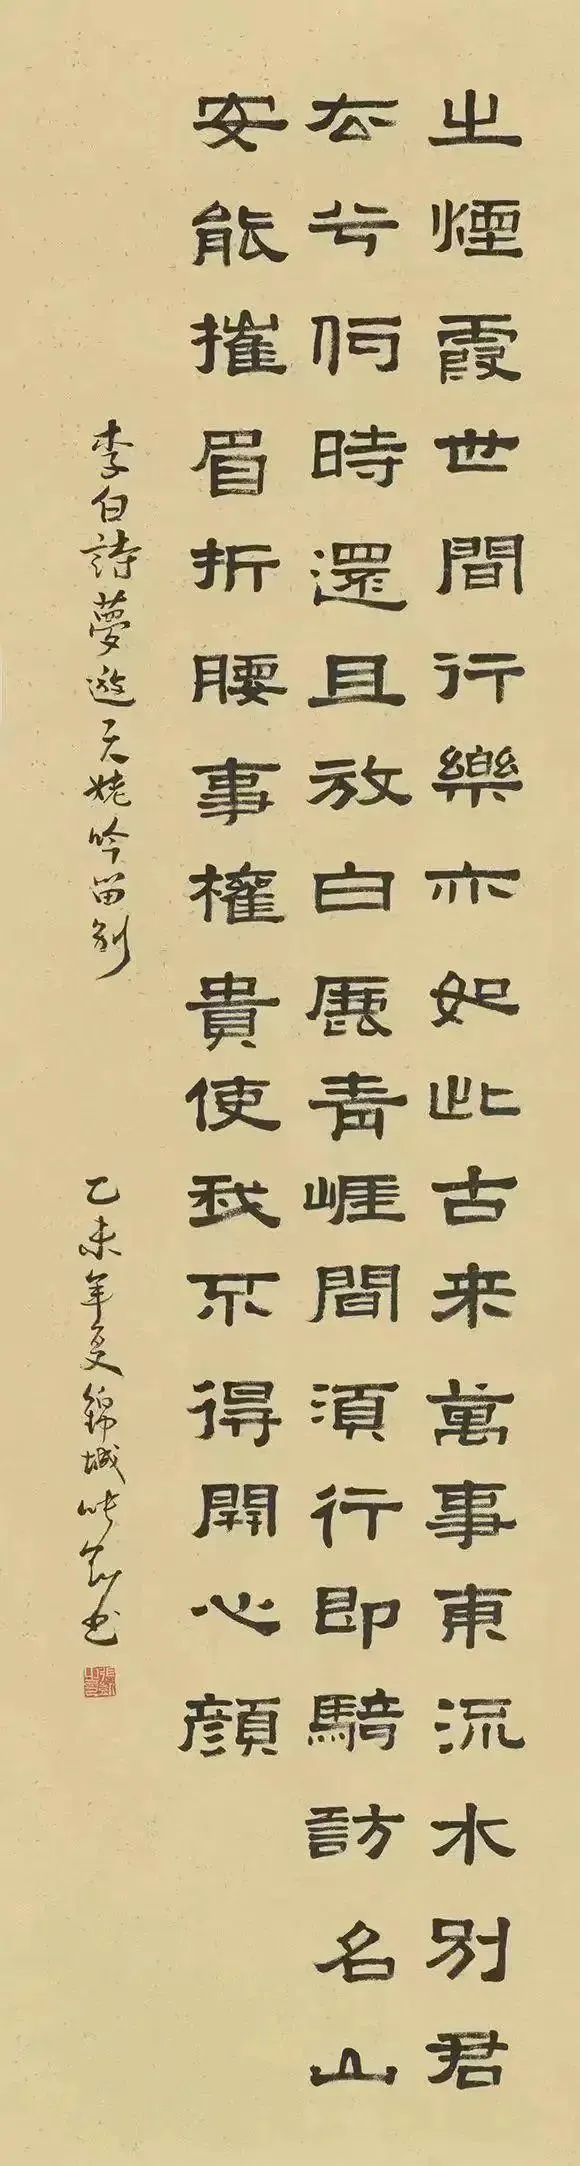 之煙霞世間行樂亦如此古来萬事東流水別君
去兮何時還且放白鹿青崖間須行即騎訪名山
安能摧眉折腰事權貴使我不得開心顏
李白詩夢遊天姥吟留別
乙未年夏錦城书